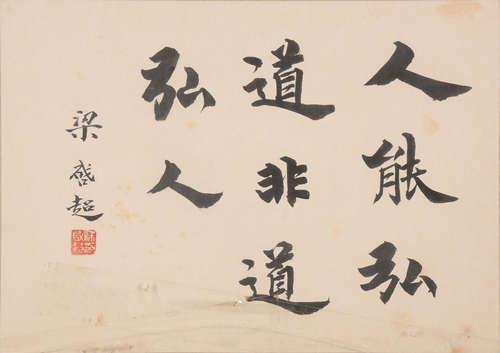 人能弘
道非道
弘人
梁启超